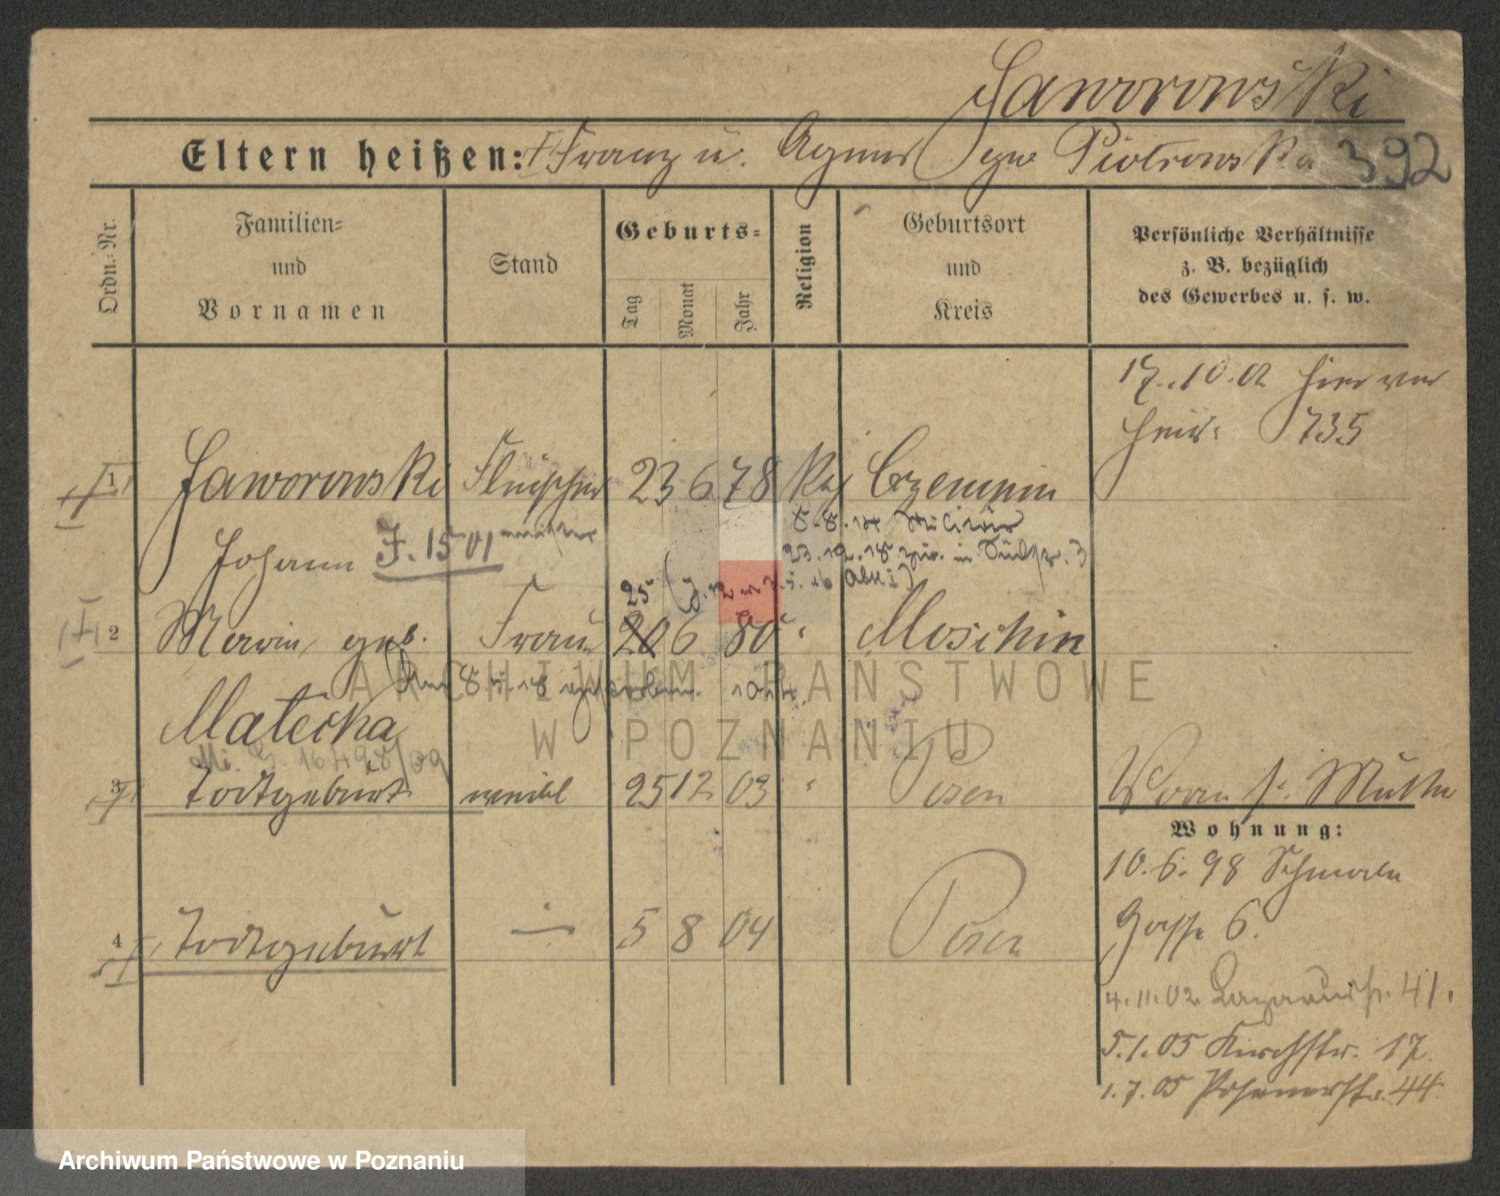 Jaworowski
Eltern heißen: Franz u. Agnes geb. Piotrowska 392
Ordn.-Nr.
Familien-
und
Vornamen
Stand
Geburts-
Tag
Monat
Jahr
Religion
Geburtsort
und
Kreis
Persönliche Verhältnisse
z. B. bezüglich
des Gewerbes u. s. w.
17.10.02 hier
735
1 Jaworowski Fleischer 23 6 78 Czempin
8.8.14 Militär
Johann J. 1501
23.12.18 zur. in 3
25
2 Maria, geb. Frau 20 6 80 " Moschin
Matecka
3 Todtgeburt weibl 25 12 03 " Posen
Vorn s. Mutter
Wohnung:
10.6.98 Schmale
Gasse 6.
4 Todtgeburt 5 8 04 Posen
4.11.02 Lazarusstr. 41.
5.1.05 Kirchstr. 17.
1.7.05 Posenerstr. 44
ARCHIWUM PAŃSTWOWE
W POZNANIU
Archiwum Państwowe w Poznaniu